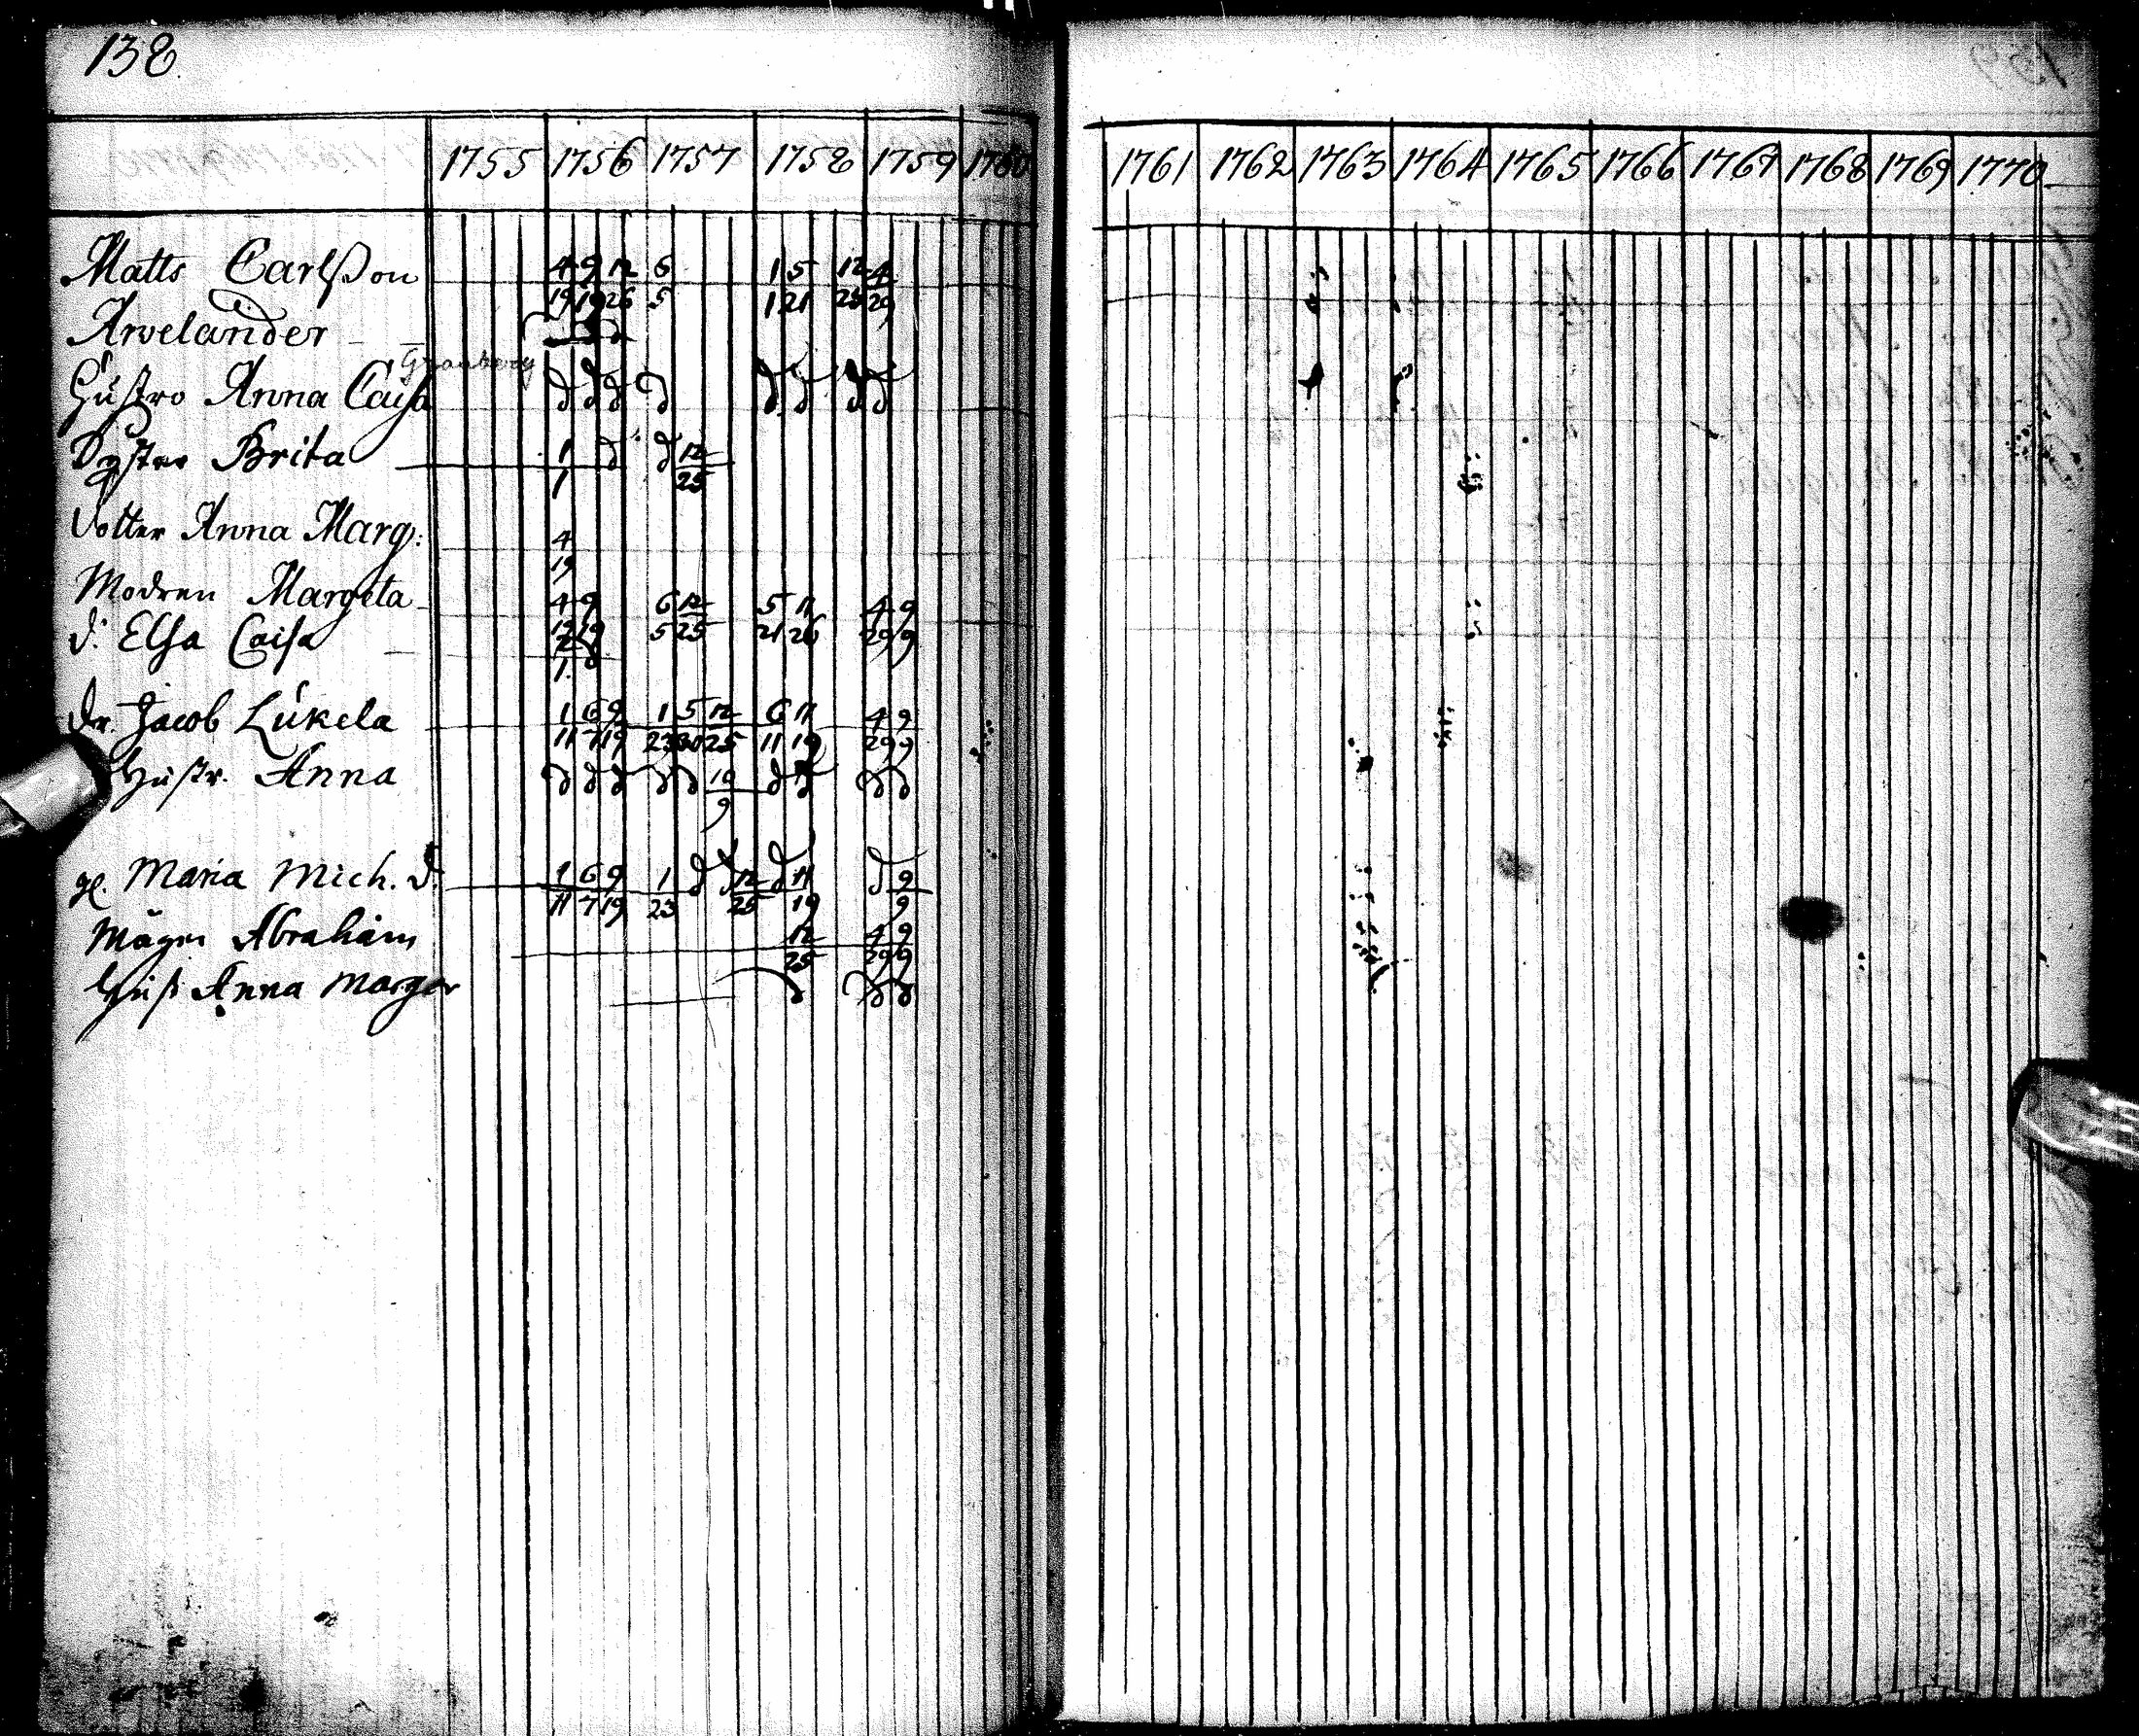 138.
1755 1756 1757 1758 1759 1760 1761 1762 1763 1764 1765 1766 1767 1768 1769 1770
Matts Carlßon 4 9 12 6 1 5 12 4
19 19 26 5 1 21 26 29
Arvelander
Granberg
Hustro Anna Caisa d d d d d d d d
Syster Brita 1 d d 12
1 25
Dotter Anna Marg: 4
19
Modren Margeta 4 9 6 12 5 11 4 9
19 19 5 25 21 26 29 9
d: Elsa Caisa
1
dr. Jacob Lukela 1 6 9 1 5 12 6 11 4 9
11 7 19 23 30 25 11 19 29 9
Hustr. Anna d d d d d 10 d d d d
9
gl. Maria Mich. d. 1 6 9 1 d d 12 d 11 d 9
11 7 19 23 25 19 9
Mågen Abraham 12 4 9
25 29 9
Hust Anna Margar d d d